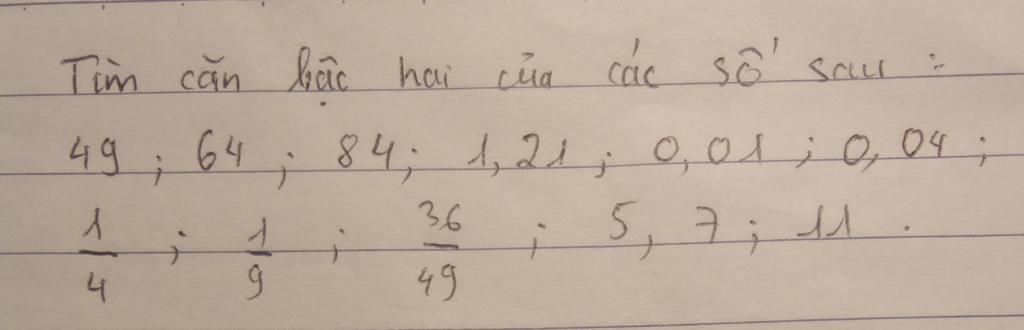 Tìm căn bậc hai của các số sau :
49 ; 64 ; 84 ; 1,21 ; 0,01 ; 0,04 ;
1/4 ; 1/9 ; 36/49 ; 5, 7 ; 11 .